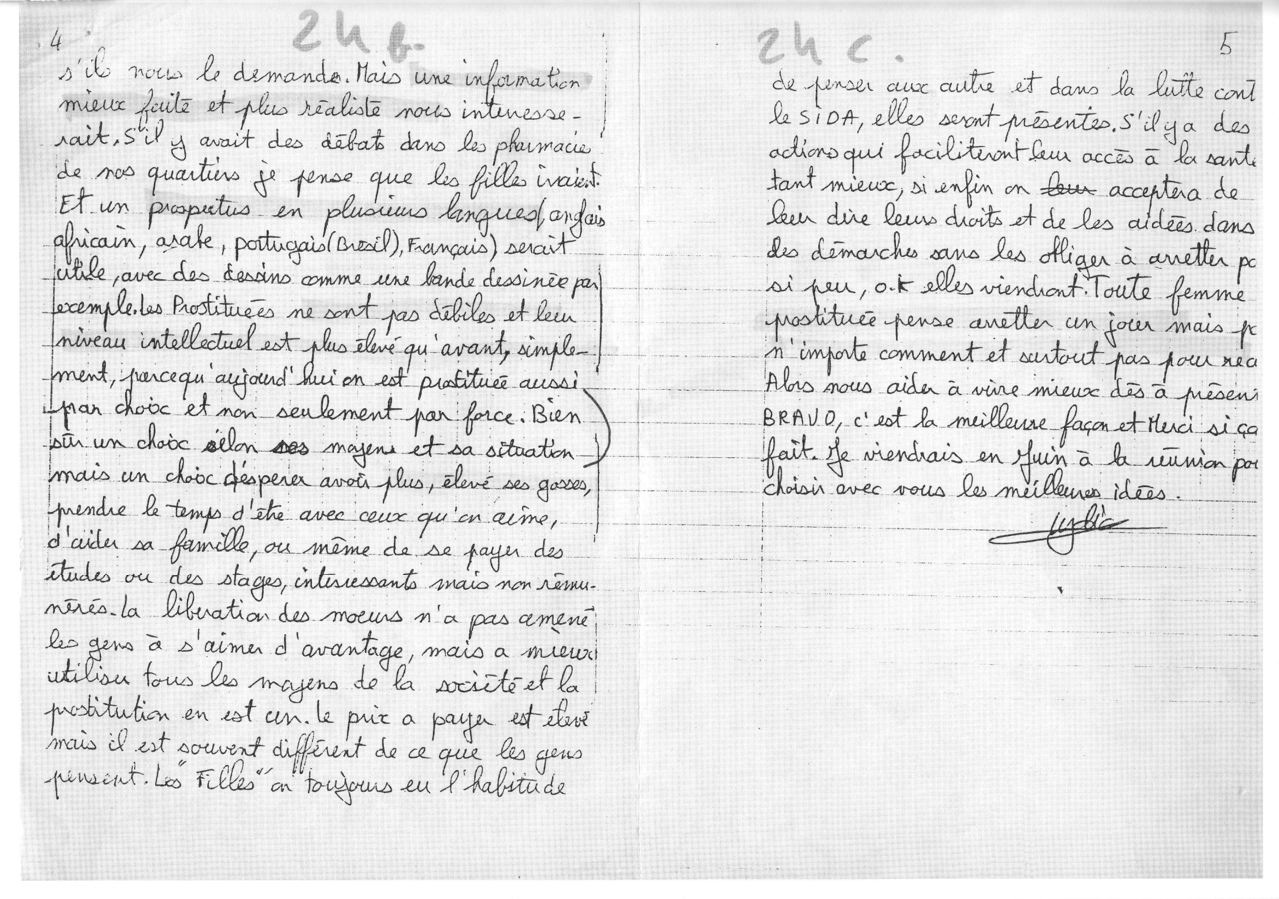 4
24 b.
s'ils nous le demande. Mais une information
mieux faite et plus réaliste nous interesse-
rait. S'il y avait des débats dans les pharmacie
de nos quartiers je pense que les filles iraient.
Et un prospectus en plusieurs langues (anglais
africain, arabe, portugais (Brésil), Français) serait
utile, avec des dessins comme une bande dessinée par
exemple. Les Prostituées ne sont pas débiles et leur
niveau intellectuel est plus élevé qu'avant, simple-
ment, parcequ'aujourd'hui on est prostituée aussi
par choix et non seulement par force. Bien
sûr un choix selon ses moyens et sa situation
mais un choix d'espérer avoir plus, élevé ses gosses,
prendre le temps d'être avec ceux qu'on aime,
d'aider sa famille, ou même de se payer des
études ou des stages, intéressants mais non rému-
nérés. La libération des moeurs n'a pas amené
les gens à s'aimer d'avantage, mais a mieux
utiliser tous les moyens de la société et la
prostitution en est un. Le prix a payer est élevé
mais il est souvent différent de ce que les gens
pensent. Les "Filles" on toujours eu l'habitude
24 c.
5
de penser aux autre et dans la lutte cont
le SIDA, elles seront présentes. S'il y a des
actions qui faciliteront leur accès à la santé
tant mieux, si enfin on leur acceptera de
leur dire leurs droits et de les aidées dans
des démarches sans les obliger à arretter po
si peu, o.k elles viendront. Toute femme
postituée pense arretter un jour mais p
n'importe comment et surtout pas pour
Alors nous aider à vivre mieux dès à présent
BRAVO, c'est la meilleure façon et Merci si ça
fait. Je viendrais en Juin à la réunion pou
choisir avec vous les meilleures idées.
Lydia